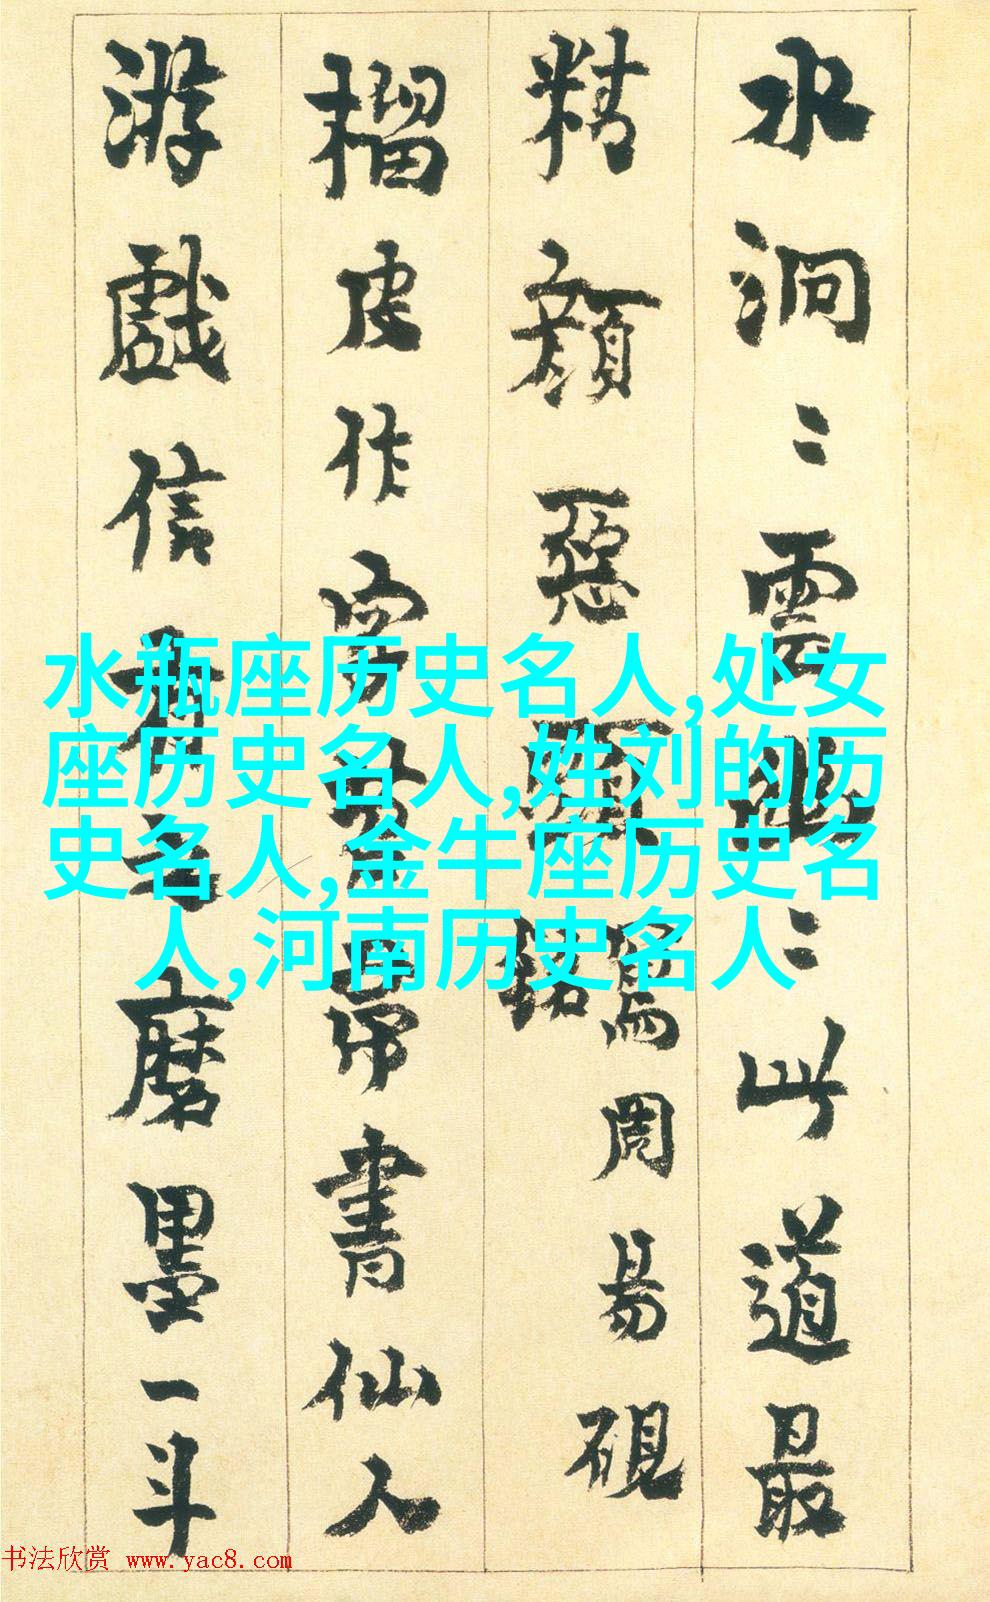 水洞〻雲幽〻此道最
精顏惡頭
銘寫周易硯
榴皮作字
帚書仙人
游戲信有之磨墨一斗
水瓶座历史名人,处女
座历史名人,姓刘的历
史名人,金牛座历史名
人,河南历史名人
书法欣赏 www.yac8.com